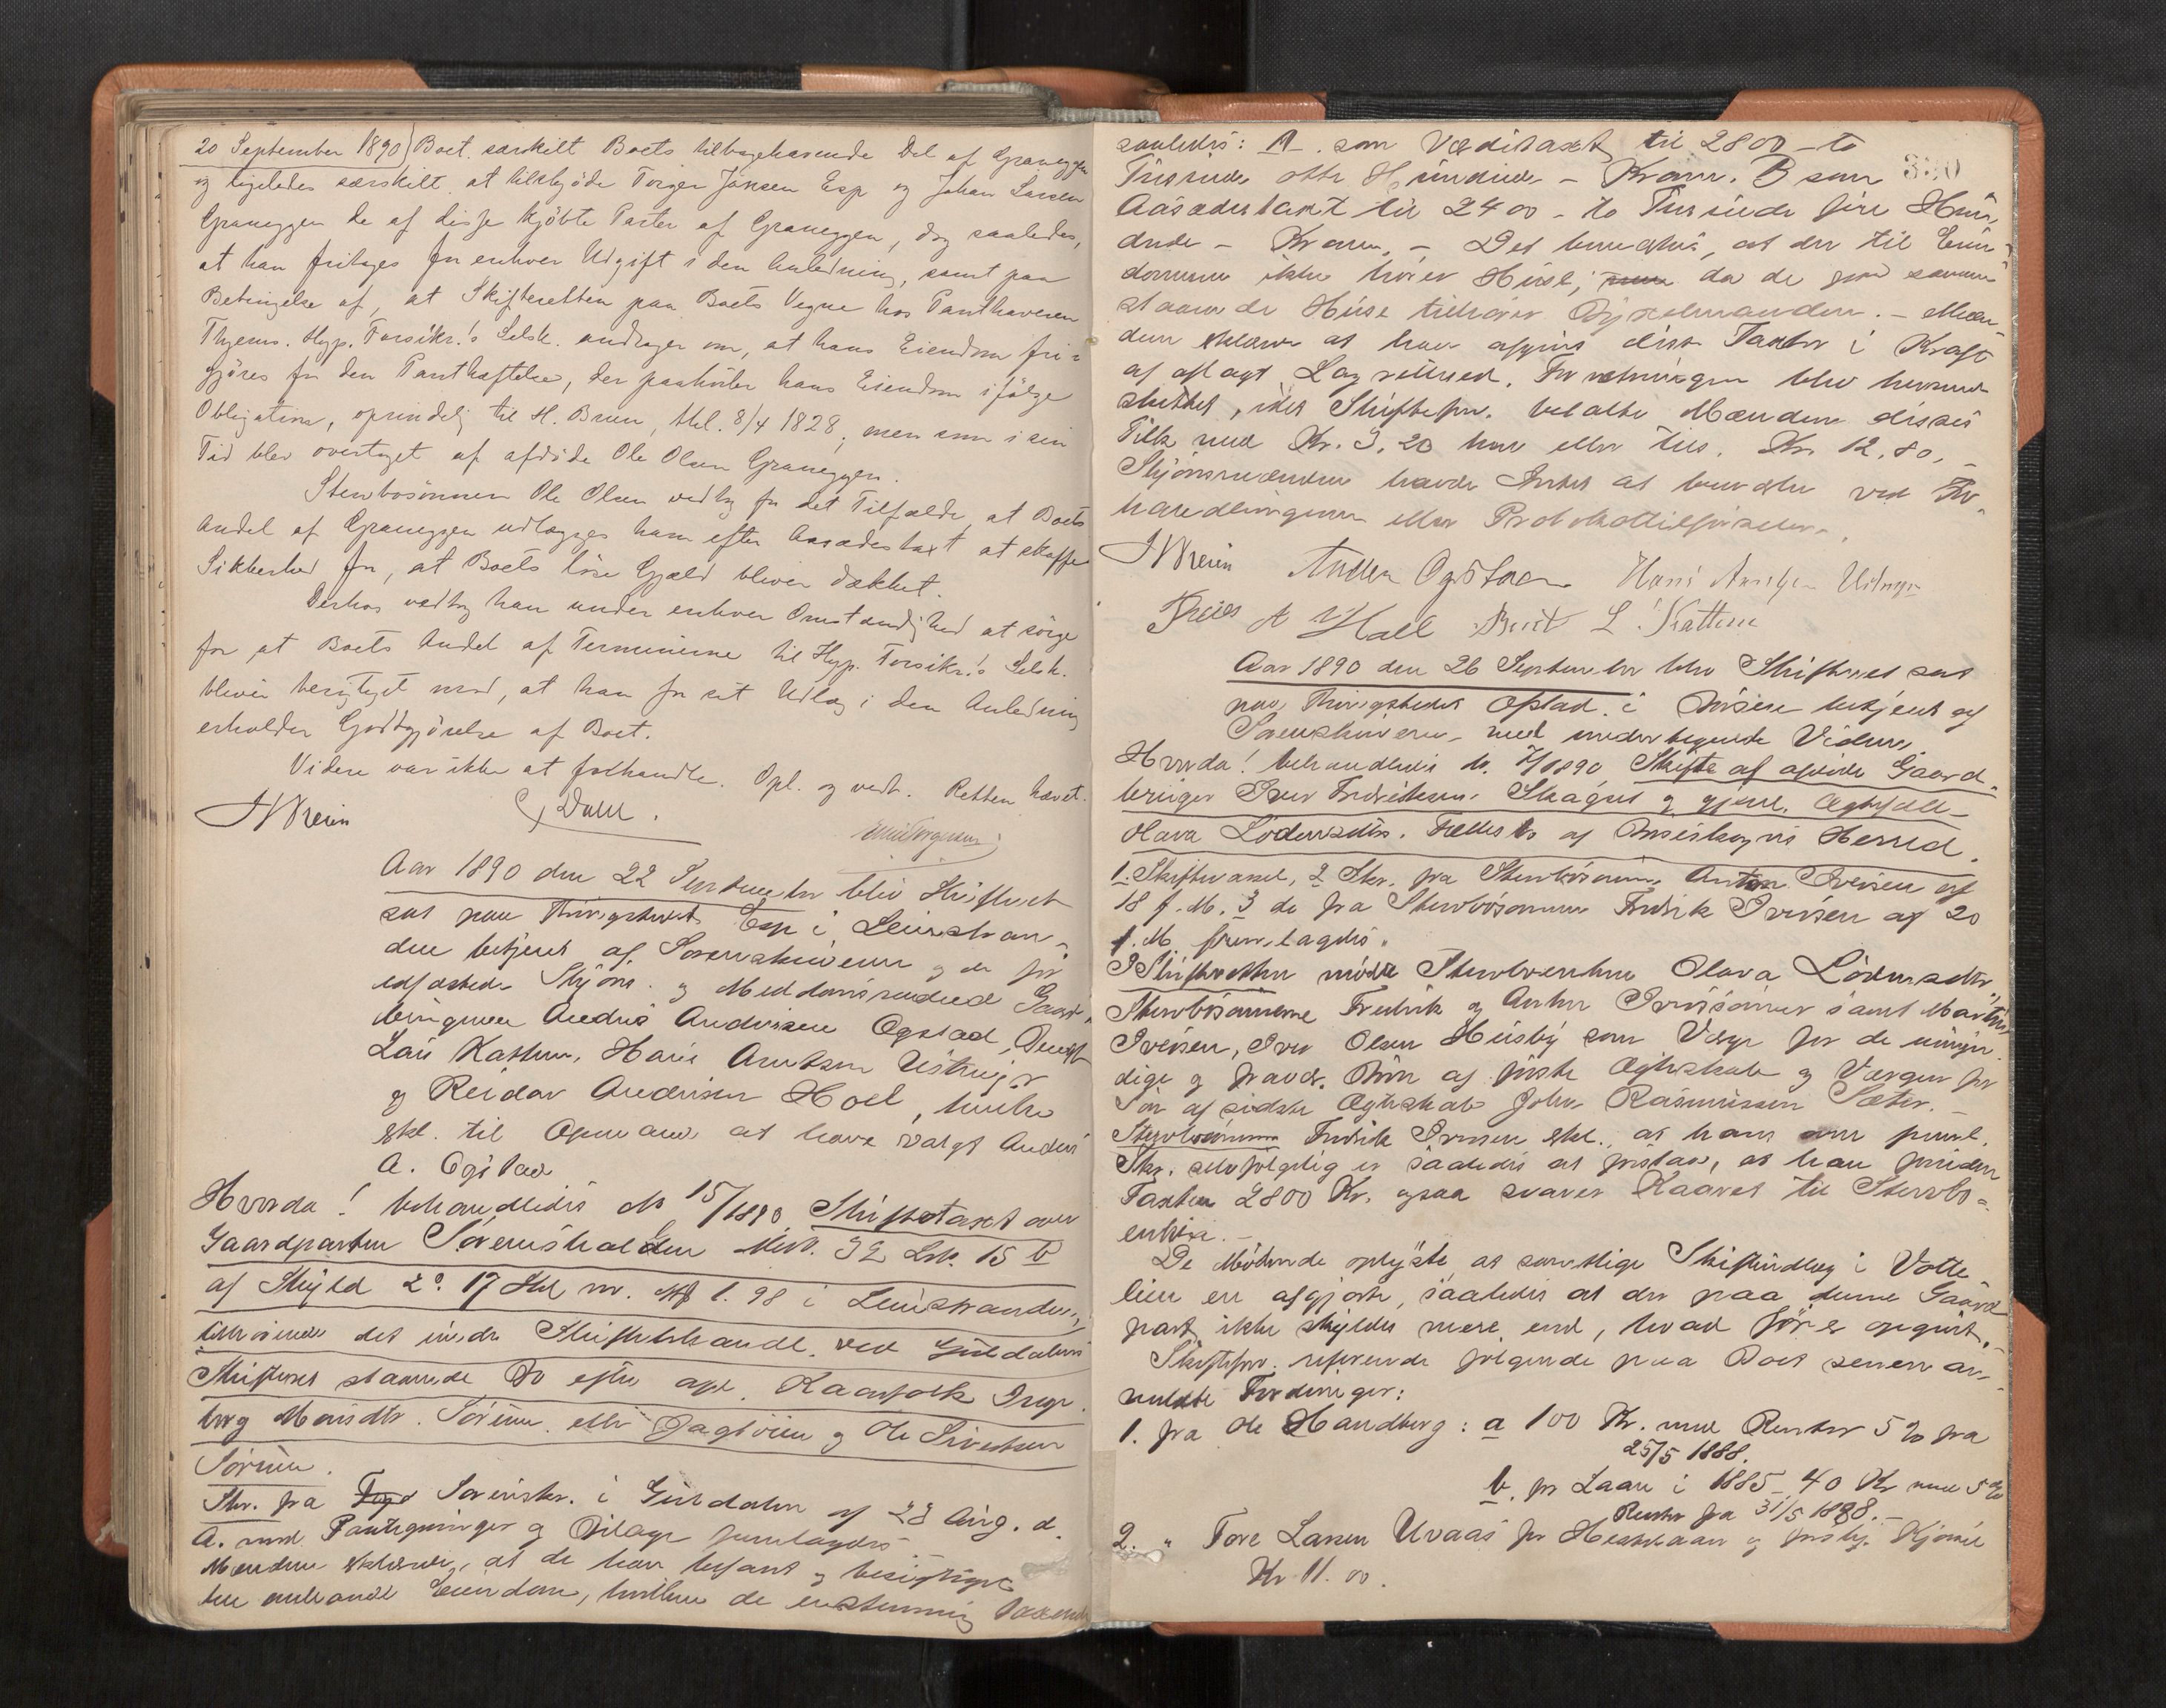 20 September 1890) Boet særskilt Boets tilbagehavende Del af Graneggen
og ligeledes særskilt at tilkbyde Torger Jonsen Esp og Johan Larsen
Graneggen de af disse kjöbte Parter af Graneggen, dog saaledes,
at han fritages for enhver Udgift i den Anledning, samt paa
Betingelse af, at Skifteretten paa Boets Vegne hos Panthaveren
Thjems. Hyp. Forsikr.s Selsk. andrager om, at hans Eiendom fri-
gjöres for den Panthæftelse, der paahviler hans Eiendom ifölge
Obligation, oprindelig til H. Bruun, thl. 8/4 1828, men som i sin
Tid blev overtaget af afdöde Ole Olsen Graneggen.
Stervbosönnen Ole Olsen vedtog for det Tilfælde, at Boets
Andel af Graneggen udlægges ham efter Aasædestaxt at skaffe
Sikkerhed for, at Boets löse Gjæld bliver dækket.
Derhos vedtog han under enhver Omstændighed at sörge
for at Boets Andel af Terminerne til Hyp. Forsikr.s Selsk.
bliver berigtiget mod, at han for sit Udlæg i den Anledning
erholder Godtgjörelse af Boet.
Videre var ikke at forhandle. Opl. og vedt. Retten hævet.
Dahl.
Aar 1890 den 22 September blev Skifteret
sat paa Thingstedet Esp i Leinstran-
den betjent af Sorenskriveren og de för
edfæstede Skjöns- og Meddomsmænd Gaard-
brugerne Anders Andersen Ogstad, Bendt
Lars Kattem, Hans Arntsen Ustmyr
og Reidar Andersen Hoel, hvilke
erkl. til Opmand at have valgt Anders
A. Ogstad
Hvorda! behandledes No 15/1890 Skiftetaxt over
Gaardparten Söremshalden Mno. 32 Lno. 15 b
af Skyld 2 o. 17 Skl ny Mk 1.98 i Leinstranden,
tilhörende det under Skiftebehandl. ved Guldalens
Skifteret staaende Bo efter afd. Kaarfolk Inge-
borg Monsdtr. Söreim eller Jagtöien og Ole Sivertsen
Söreim.
Skr. fra Sorenskr. i Guldalen af 23 Aug. d.
A. med Paategninger og Bilage fremlagdes
Mændene erklærede, at de have befaret og besigtiget
den omhandl. Eiendom, hvilken de enstemmig taxerede
saaledes: A. som Værditaxt til 2800 – to
Tusinde otte Hundrede – Kroner. B som
Aasædestaxt til 2400 – to Tusinde fire Hun-
drede – Kroner. – Det bemærkes, at der til Eien-
dommen ikke hörer Huse, da de paa samme
staaende Huse tilhörer Bygselmanden. – Mæn-
dene erklærede at have afgivet disse Taxter i Kraft
af aflagt Lagrettesed. Forretningen blev hermed
sluttet, idet Skifteforv. betalte Mændene disses
Tilk. med Kr. 3.20 hver eller tils. Kr. 12.80. –
Skjönsmændene havde Intet at bemærke ved For-
handlingerne eller Protokoltilförselen.
Anders Ogstad Hans Arntsen Ustmyr
A Hoel Bent L. Kattem
Aar 1890 den 26 September blev Skifteret sat
paa Thingstedet Opstad i Börsen betjent af
Sorenskriveren med undertegnede Vidner.
Hvorda! behandledes No. 7/1890 Skifte af afdöde Gaard-
bruger Iver Fredriksen Skagset og gjenl. Ægtefælle
Olava Lödensdtr. Fællesbo af Börseskogns Herred.
1. Skiftevarsel, 2 Skr. fra Stervbosönnen Anton Iversen af
18 d. M. 3 do fra Stervbosönnen Fredrik Iversen af 20
d. M. fremlagdes.
I Skifteretten mödte Stervboenken Olava Lödensdtr,
Stervbosönnerne Fredrik og Anton Iverssönner samt Martin
Iversen, Iver Olsen Husby som Værge for de umyn-
dige og fravær. Börn af förste Ægteskab og Værgen for
Sön af sidste Ægteskab John Rasmussen Sæter. –
Stervbosönnen Fredrik Iversen erkl., at hans oven freml.
Skr. selvfölgelig er saaledes at forstaa, at han foruden
Taxten 2800 Kr. ogsaa svarer Kaaret til Stervbo-
enken. –
De Mödende oplyste at samtlige Skifteudlæg i Votte-
lien ere afgjorte, saaledes at der paa denne Gaard
part ikke skyldes mere end, hvad för er opgivet.
Skifteforv. refererede fölgende paa Boet senere an-
meldte Fordringer:
1. fra Ole Handberg: a 100 Kr. med Renter 5 % fra
25/5 1888.
b. for Laan i 1885 – 40 Kr med 5 %
Renter fra 31/5 1888. –
2. " Tore Larsen Uvaas for Hestelaan og forsky. Kjörsel
Kr 11.00.